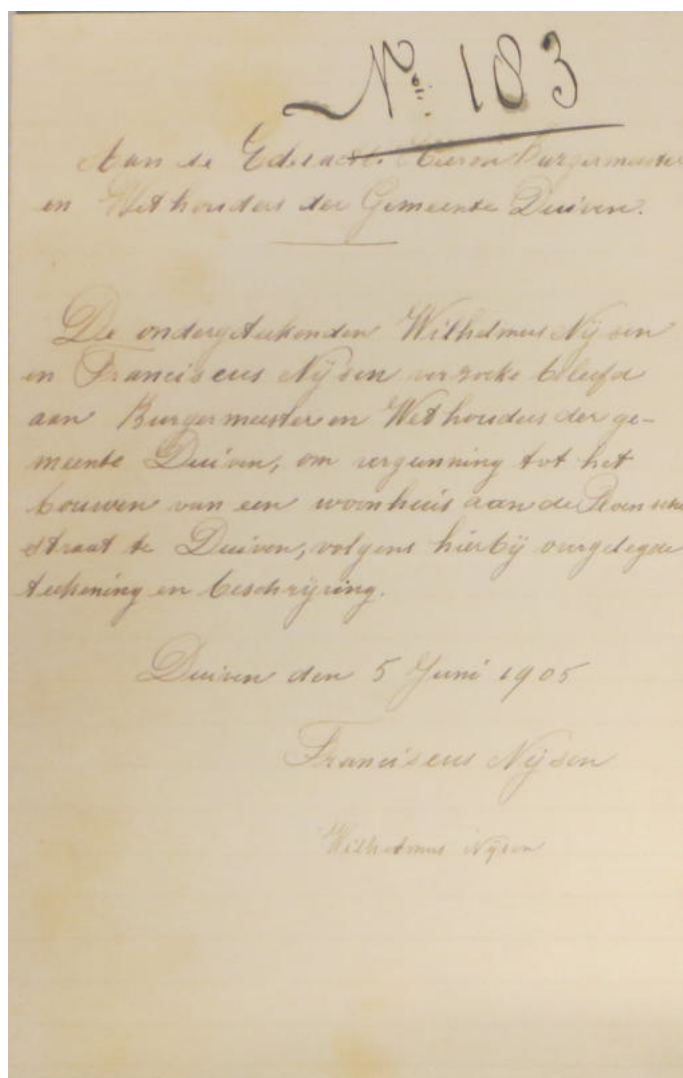 No. 183
Aan de Edelachtb. Heeren Burgermeester
en Wethouders der Gemeente Duiven.
De ondergeteekenden Wilhelmus Nijsen
en Franciscus Nijsen verzoeke beleefd
aan Burgermeester en Wethouders der ge-
meente Duiven, om vergunning tot het
bouwen van een woonhuis aan de
straat te Duiven, volgens hierbij overgelegde
teekening en beschrijving.
Duiven den 5 Juni 1905
Franciscus Nijsen
Wilhelmus Nijsen